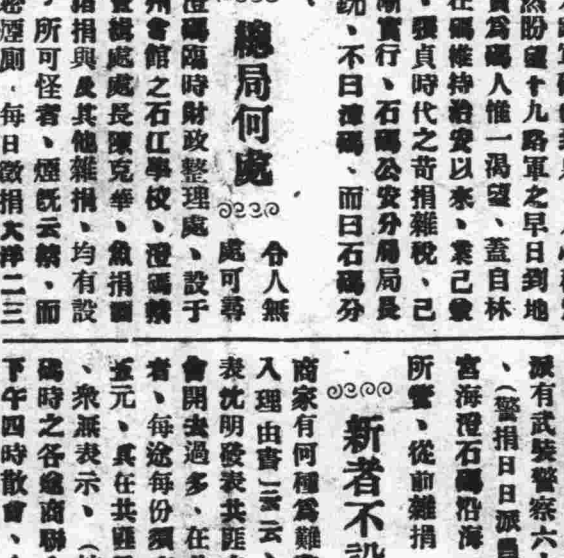 然盼望十九路軍之早日到地
實爲碼人惟一渴望、蓋自林
在碼維持治安以來、業已
、張貞時代之苛捐雜稅、己
漸實行、石碼公安分局局長
、不曰漳碼、而曰石碼分
總局何處
令人無
處可尋
澄碼臨時財政整理處、設于
州會館之石江學校、澄碼禁
查緝處處長陳克華、魚捐
捐與及其他雜捐、均有設
、所可怪者、煙旣云禁、而
密煙厠、每日徵捐大洋二三
派有武裝警察六
、(警捐日日派
宮海澄石碼沿海
所警、從前雜捐
新者不
商家有何種爲難
入理由書」云云、
表沈明發表共匪
會開去過多、在
者、每途每份須
五元、其在共匪
、衆無表示、(
碼時之各途商聯
下午四時散會、